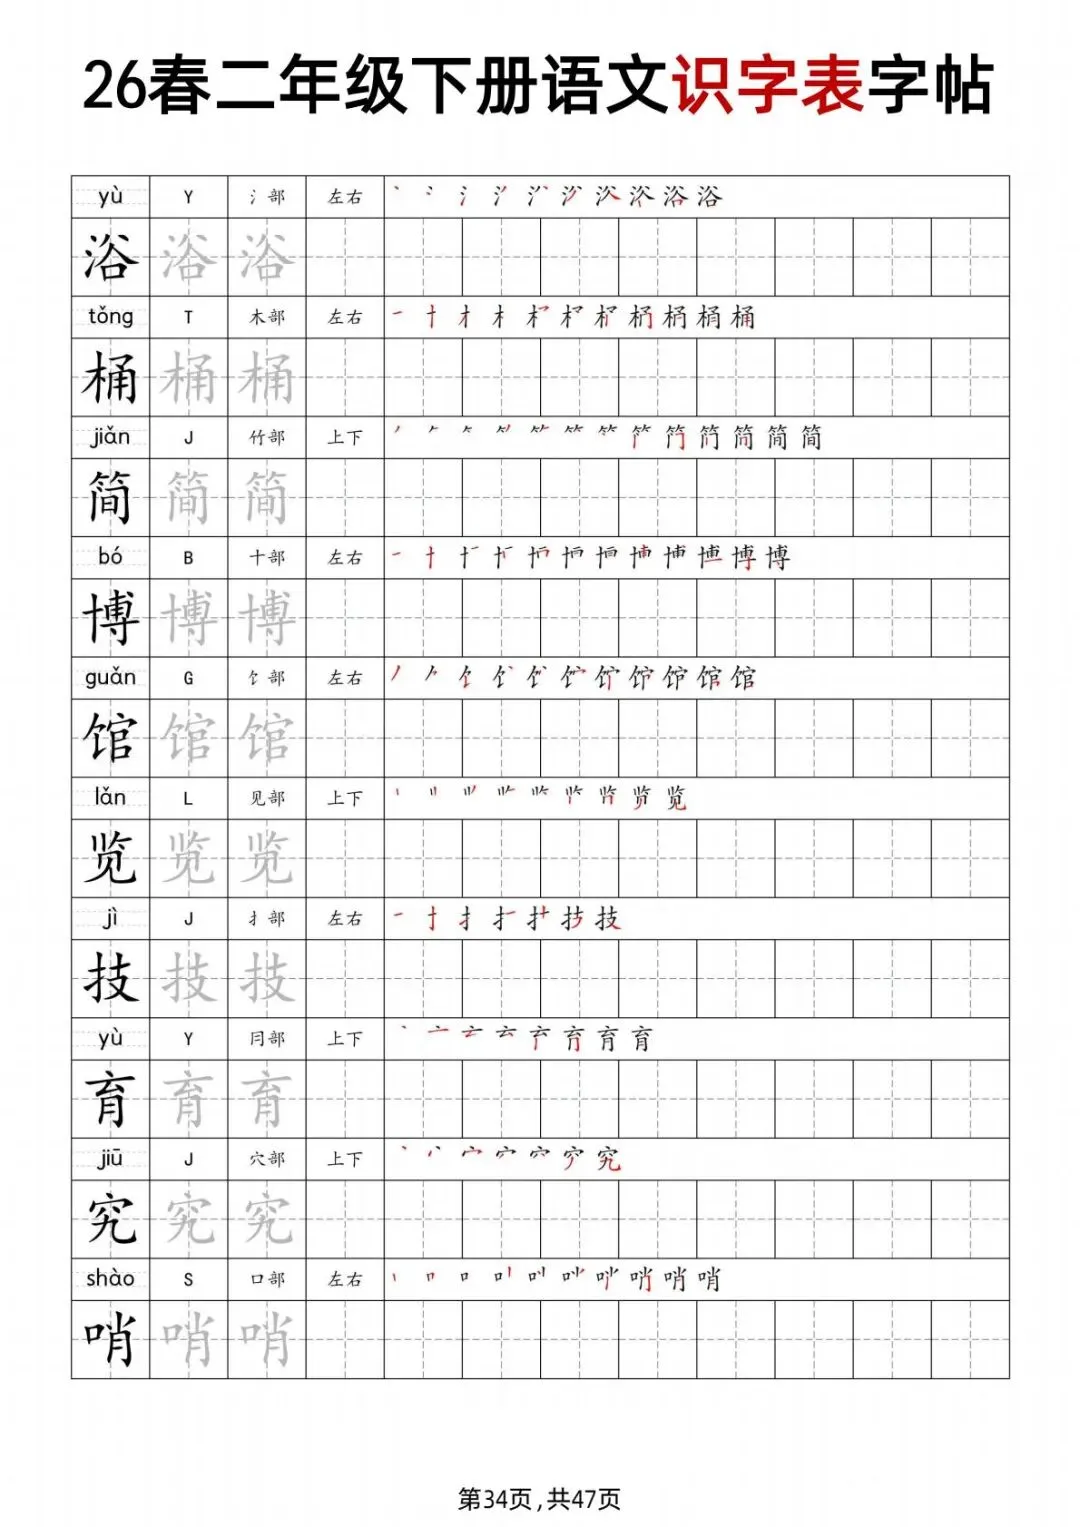 26春二年级下册语文识字表字帖
yù Y 氵部 左右 浴
浴 浴 浴
tǒng T 木部 左右 桶
桶 桶 桶
jiǎn J 竹部 上下 简 简
简 简 简
bó B 十部 左右 博
博 博 博
guǎn G 饣部 左右 馆
馆 馆 馆
lǎn L 见部 上下 览
览 览 览
jì J 扌部 左右 一 扌 技
技 技 技
yù Y 冃部 上下 育 育
育 育 育
jiū J 穴部 上下 究
究 究 究
shào S 口部 左右 哨 哨
哨 哨 哨
第34页,共47页